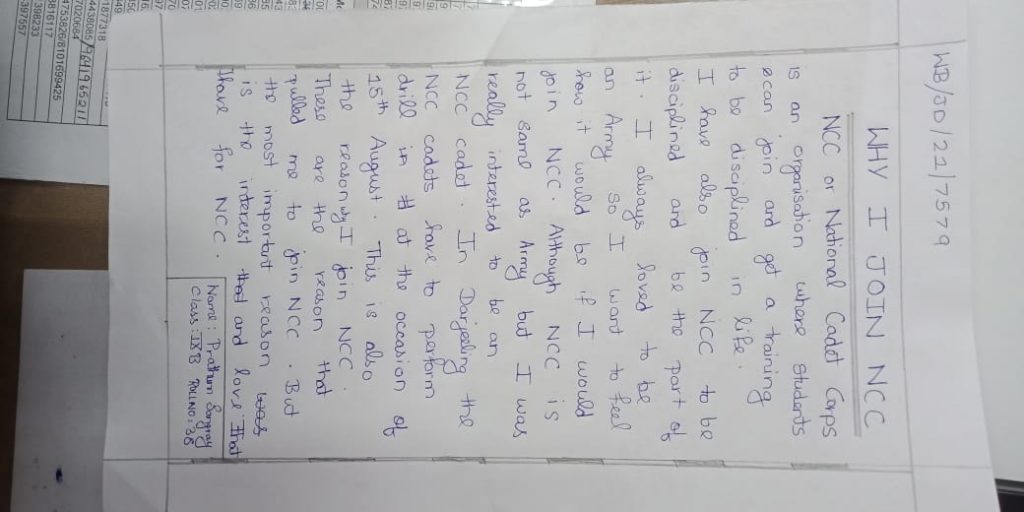 WB/JD/21/7579
WHY I JOIN NCC
NCC or National Cadet Corps
is an organisation where students
can join and get a training
to be disciplined in life.
I have also join NCC to be
disciplined and be the part of
it. I always loved to be
an Army so I want to feel
how it would be if I would
join NCC. Although NCC is
not same as Army but I was
really interested to be an
NCC cadet. In Darjeeling the
NCC cadets have to perform
drill in at the occasion of
15th August. This is also
the reason why I join NCC.
These are the reason that
pulled me to join NCC. But
the most important reason
is the interest and love that
I have for NCC.
Name: Pratham
Class: IX B Roll NO: 38
1877318
44380851
9641965211
7020684
4753826/8101699425
5816117
398233
397557